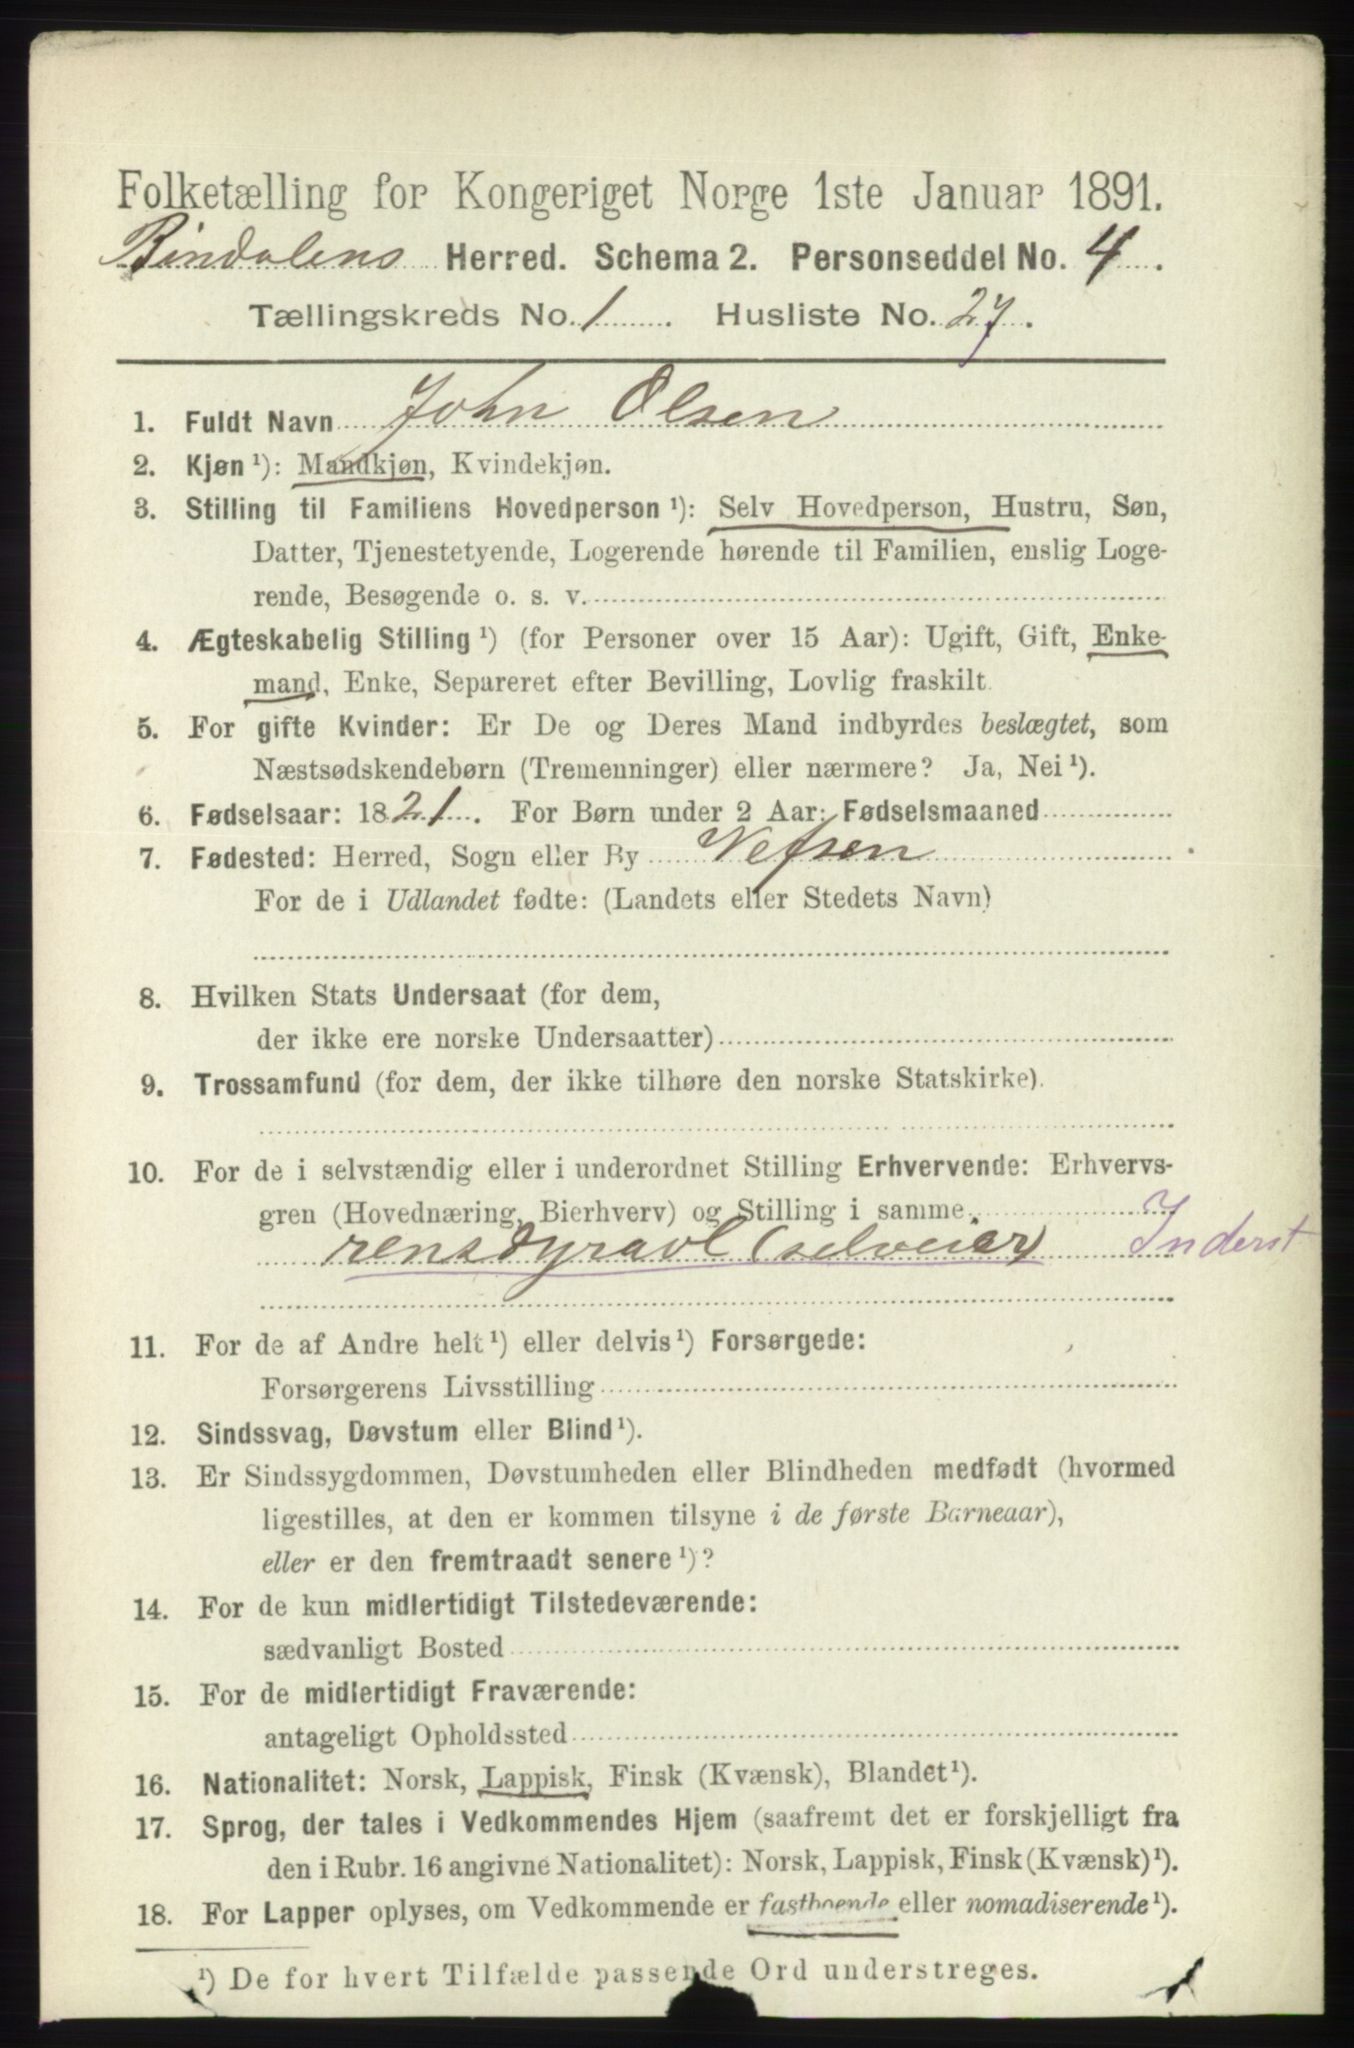 Folketælling for Kongeriget Norge 1ste Januar 1891.
Bindalens Herred. Schema 2. Personseddel No. 4.
Tællingskreds No. 1. Husliste No. 27.
1. Fuldt Navn John Olsen
2. Kjøn ¹): Mandkjøn, Kvindekjøn.
3. Stilling til Familiens Hovedperson ¹): Selv Hovedperson, Hustru, Søn,
Datter, Tjenestetyende, Logerende hørende til Familien, enslig Loge-
rende, Besøgende o. s. v.
4. Ægteskabelig Stilling ¹) (for Personer over 15 Aar): Ugift, Gift, Enke-
mand, Enke, Separeret efter Bevilling, Lovlig fraskilt.
5. For gifte Kvinder: Er De og Deres Mand indbyrdes beslægtet, som
Næstsødskendebørn (Tremenninger) eller nærmere? Ja, Nei ¹).
6. Fødselsaar: 1821. For Børn under 2 Aar: Fødselsmaaned
7. Fødested: Herred, Sogn eller By Vefsen
For de i Udlandet fødte: (Landets eller Stedets Navn)
8. Hvilken Stats Undersaat (for dem,
der ikke ere norske Undersaatter)
9. Trossamfund (for dem, der ikke tilhøre den norske Statskirke).
10. For de i selvstændig eller i underordnet Stilling Erhvervende: Erhvervs-
gren (Hovednæring, Bierhverv) og Stilling i samme.
rensdyravl (selveier) Inderst
11. For de af Andre helt ¹) eller delvis ¹) Forsørgede:
Forsørgerens Livsstilling
12. Sindssvag, Døvstum eller Blind ¹).
13. Er Sindssygdommen, Døvstumheden eller Blindheden medfødt (hvormed
ligestilles, at den er kommen tilsyne i de første Barneaar),
eller er den fremtraadt senere ¹)?
14. For de kun midlertidigt Tilstedeværende:
sædvanligt Bosted
15. For de midlertidigt Fraværende:
antageligt Opholdssted
16. Nationalitet: Norsk, Lappisk, Finsk (Kvænsk), Blandet ¹).
17. Sprog, der tales i Vedkommendes Hjem (saafremt det er forskjelligt fra
den i Rubr. 16 angivne Nationalitet): Norsk, Lappisk, Finsk (Kvænsk) ¹).
18. For Lapper oplyses, om Vedkommende er fastboende eller nomadiserende ¹).
¹) De for hvert Tilfælde passende Ord understreges.